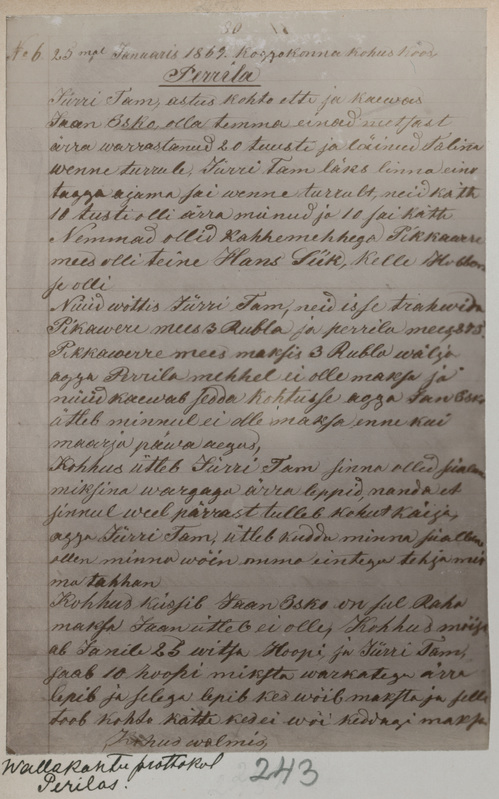 No 6 25 mal Januaris 1869. koggokonna kohus koos
Perrila
Jürri Tam, astus kohto ette ja kaewas
Jaan Esko olla temma einad metsast
ärra warrastanud 20 tuusti ja läinud Talina
wenne turrule, Jürri Tam läks linna eino
tagga ajama sai wenne turrult, neid kätte
10 tusti olli ärra münud ja 10 sai kätte
Nemmad ollid kahhemehhega Pikkawere
mees olli teine Hans Siik, kelle
se olli
Nüüd wöttis Jürri Tam, neid isse trahwida
Pikawere mees 3 Rubla ja perrila mees
Pikkawerre mees maksis 3 Rubla wälja
agga Perrila mehhel ei olle maksa ja
nüüd kaewab sedda kohtusse agga Jan Esko
ütleb minnul ei olle maksa enne kui
maarja päwa aegas,
Kohhus ütleb Jürri Tam sinna olled
miksina wargaga ärra leppid, nanda et
sinnul weel pärrast tulleb kohut käija,
agga Jürri Tam, ütleb kudda minna
ollen minna wöin omma eintega tehja mis
ma tahhan
Kohhus küssib Jaan Esko on sul Raha
maksa Jaan ütleb ei olle, Kohhus möist
ab Janile 25 witsa Hoopi, ja Jürri Tam,
saab 10, hoopi miksta warkatega ärra
lepib ja selega lepib kes wöib maksta ja selle
toob kohto kätte kes ei wöi keddagi maksa
Kohus walmis,
Wallakohtu prottokol
Perilas.
243